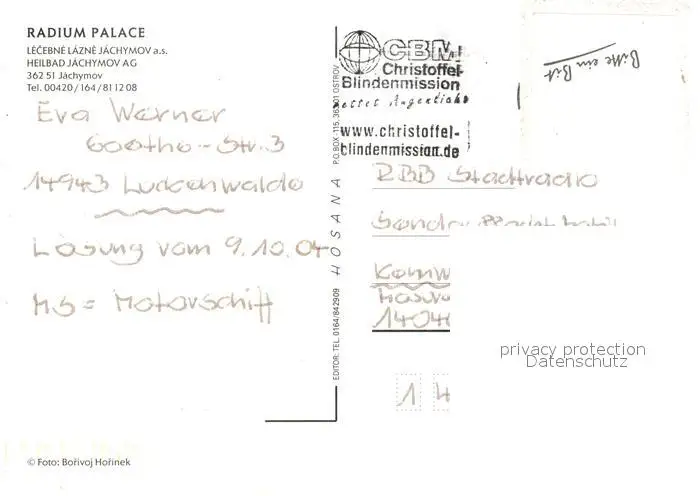 RADIUM PALACE
LÉČEBNÉ LÁZNĚ JÁCHYMOV a.s.
HEILBAD JÁCHYMOV AG
362 51 Jáchymov
Tel. 00420/164/81 12 08
Eva Werner
Goethe-Str. 3
14943 Luckenwalde
Lösung vom 9.10.04
MS = Motorschiff
© Foto: Bořivoj Hořinek
EDITOR: TEL. 0164/842909 HOSANA P.O.BOX 115, 363 01 OSTROV
CBM
Christoffel-
Blindenmission
rettet Augenlicht
www.christoffel-
blindenmission.de
Bitte ein Bit
RBB Stadtradio
14
privacy protection
Datenschutz